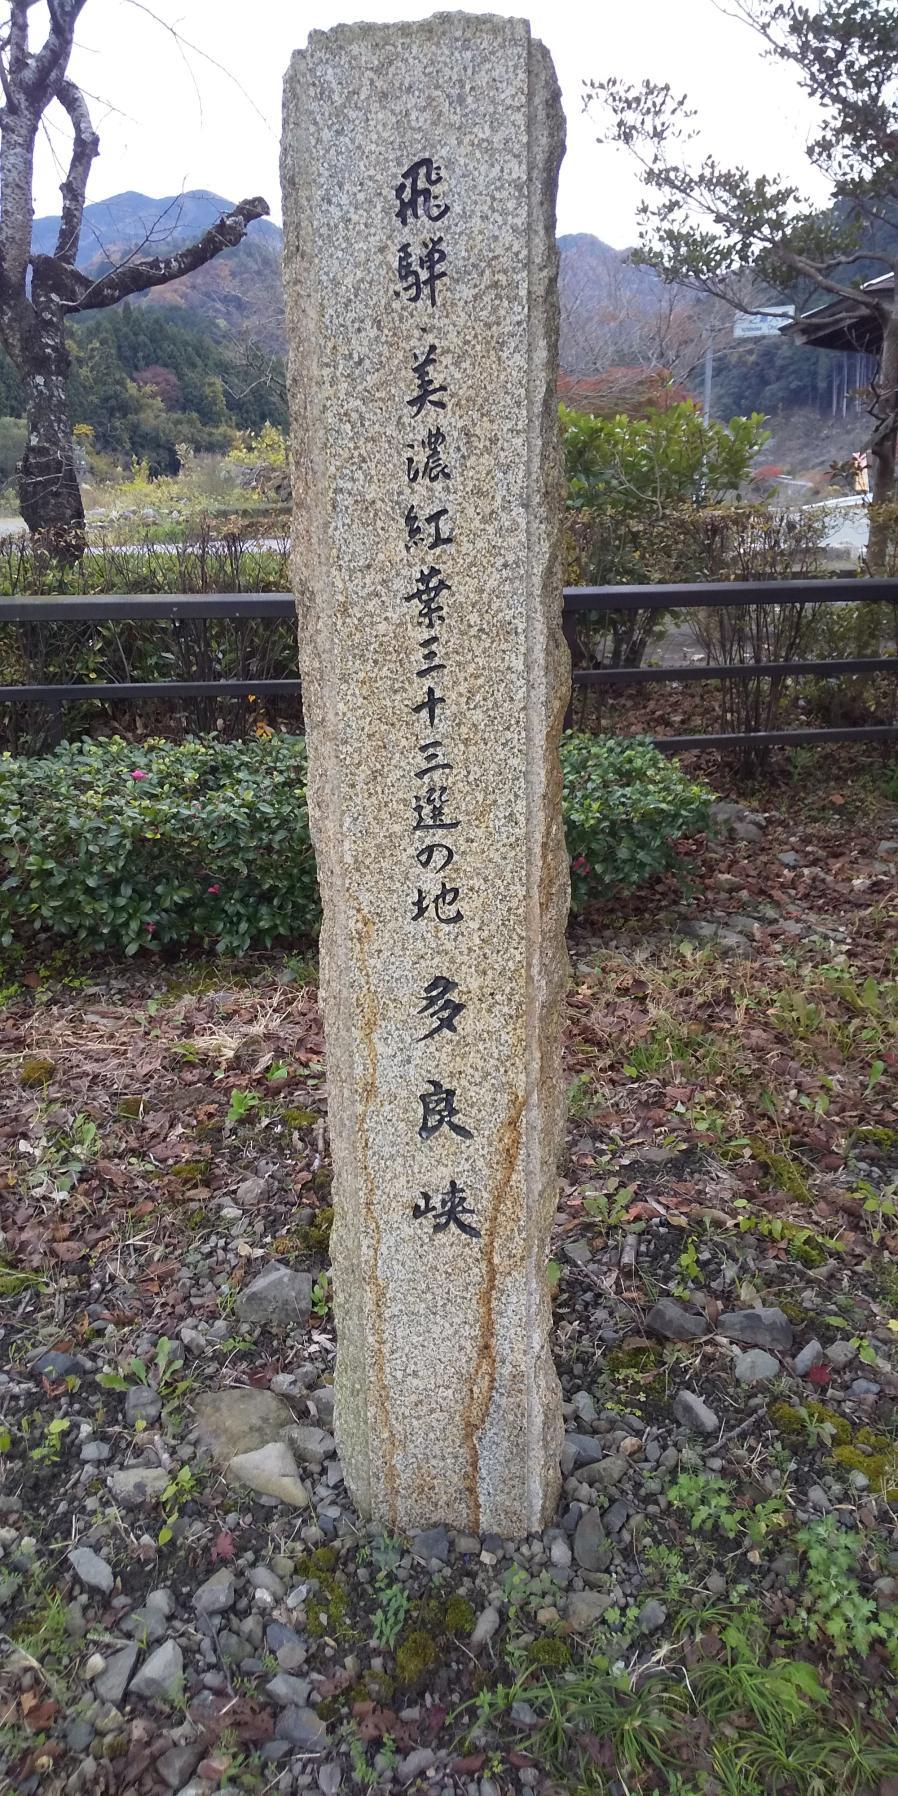 飛騨・美濃紅葉三十三選の地 多良峡